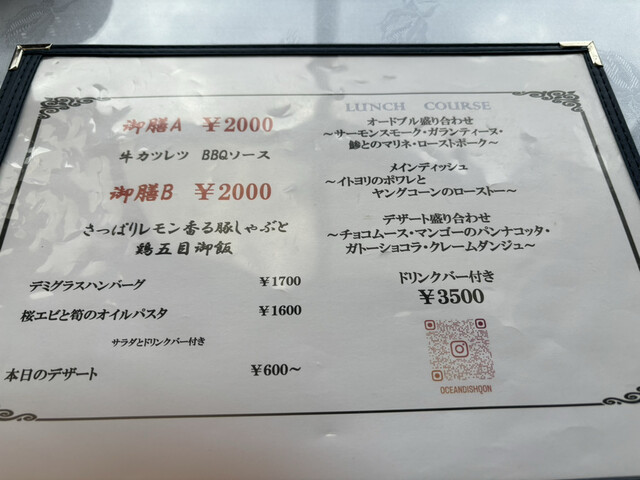 御膳A ¥2000
牛カツレツ BBQソース
御膳B ¥2000
さっぱりレモン香る豚しゃぶと
鶏五目御飯
デミグラスハンバーグ ¥1700
桜エビと筍のオイルパスタ ¥1600
サラダとドリンクバー付き
本日のデザート ¥600～
LUNCH COURSE
オードブル盛り合わせ
～サーモンスモーク・ガランティーヌ・
鯵とのマリネ・ローストポーク～
メインディッシュ
～イトヨリのポワレと
ヤングコーンのロースト～
デザート盛り合わせ
～チョコムース・マンゴーのパンナコッタ・
ガトーショコラ・クレームダンジュ～
ドリンクバー付き
¥3500
OCEANDISHQON